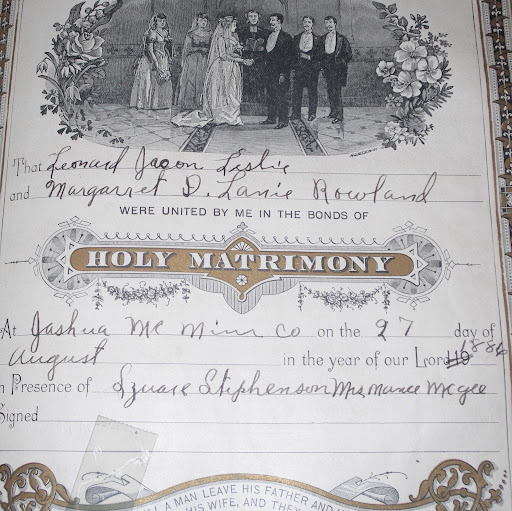 That Leonard Jason Leslie
and Margarret D. Lanie Rowland
WERE UNITED BY ME IN THE BONDS OF
HOLY MATRIMONY
At Jashua Mc Minn Co on the 27 day of
August in the year of our Lord 19 1886
n Presence of Square Stephenson Mrs Mance Mcgee
Signed
A MAN LEAVE HIS FATHER AND
HIS WIFE, AND THEY